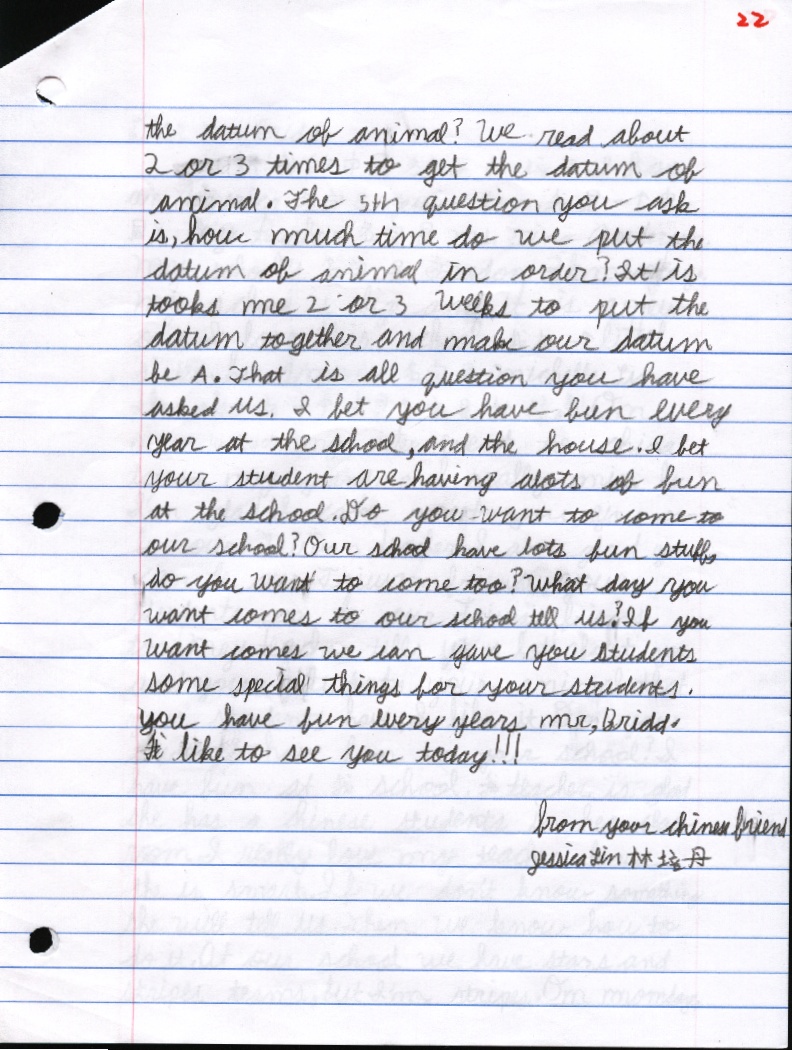 22
the datum of animal? We read about
2 or 3 times to get the datum of
animal. The 5th question you ask
is, how much time do we put the
datum of animal in order? It is
tooks me 2 or 3 weeks to put the
datum together and make our datum
be A. That is all question you have
asked us. I bet you have fun every
year at the school, and the house. I bet
your student are having alots of fun
at the school. Do you want to come to
our school? Our school have lots fun stuffs
do you want to come too? What day you
want comes to our school tell us? If you
want comes we can gave you students
some special things for your students.
you have fun every years mr, Bridd.
I like to see you today!!!
from your chinese friend
Jessica Lin 林培丹